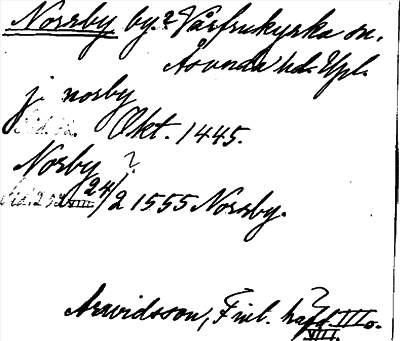 Norrby by? Vårfrukyrka sn.
Åsunda hd. Upl.
j norby
Okt. 1445.
Norby ?
24/2 1555 Norrby.
Arwidsson, Finl. ?
VIII.